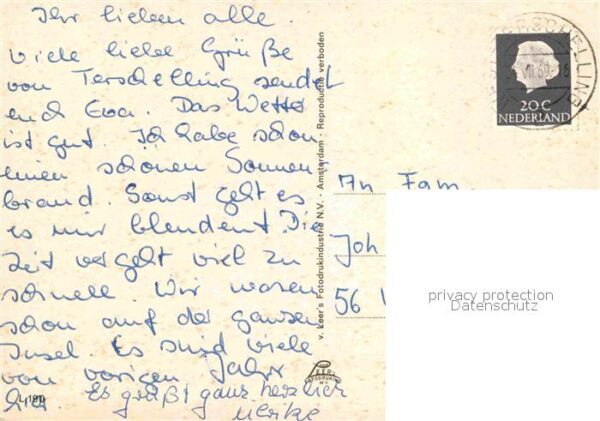 Ihr lieben alle.
viele liebe Grüße
von Terschelling sendet
euch Eva. Das Wetter
ist gut. Ich habe schon
einen schönen Sonnen
brand. Sonst geht es
es mir blendent. Die
Zeit vergeht viel zu
schnell. Wir waren
schon auf der ganzen
Insel. Es sind viele
von vorigen Jahr
hier. Es grüßt ganz herzlich
Ulrike
L 180
v. Leer's Fotodrukindustrie N.V. - Amsterdam - Reproductie verboden
LEER'S
FOTODRUKIND
TERSCHELLING
VII.69
20 C
NEDERLAND
An Fam.
Joh
56
privacy protection
Datenschutz